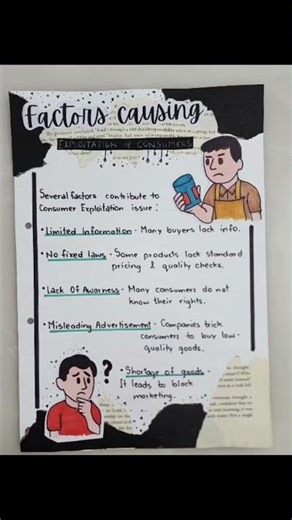 Factors causing
EXPLOITATION OF CONSUMERS
Several factors contribute to
Consumer Exploitation issue:
• Limited Information - Many buyers lack info.
• No fixed laws - Some products lack standard
pricing & quality checks.
• Lack Of Awarness - Many consumers do not
know their rights.
• Misleading Advertisement - Companies trick
consumers to buy low-
quality goods.
• Shortage of goods
It leads to black
marketing.
?